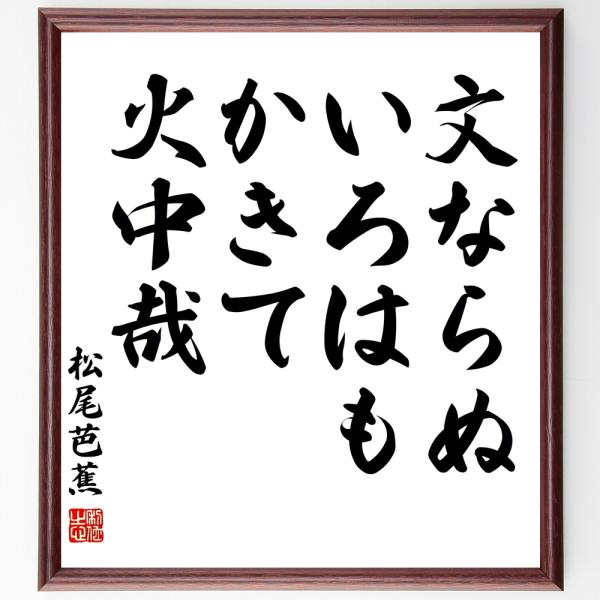 文ならぬ
いろはも
かきて
火中哉
松尾芭蕉